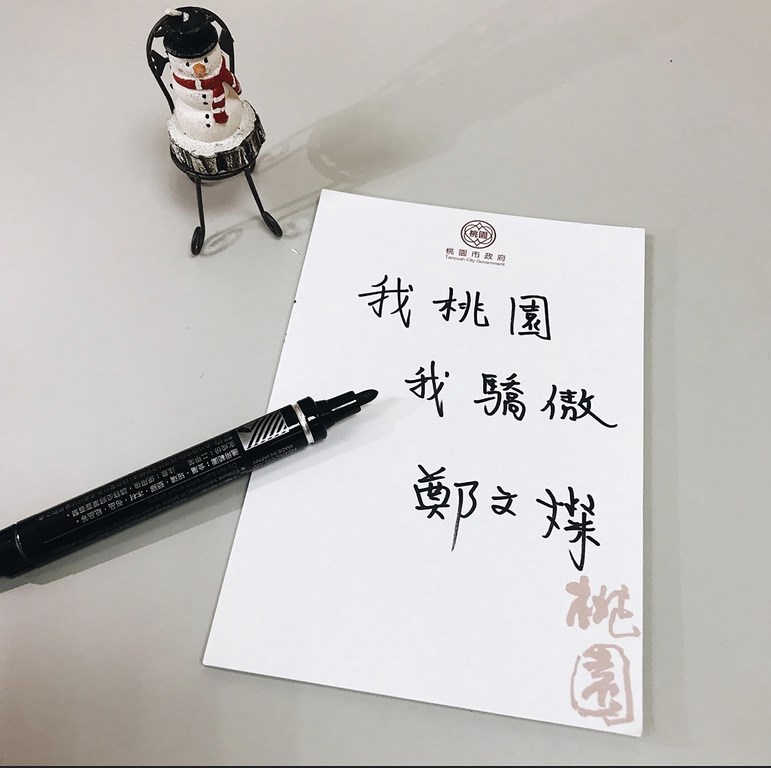 桃園
桃園市政府
Taoyuan City Government
我桃園
我驕傲
鄭文燦
桃園
MADE IN JAPAN